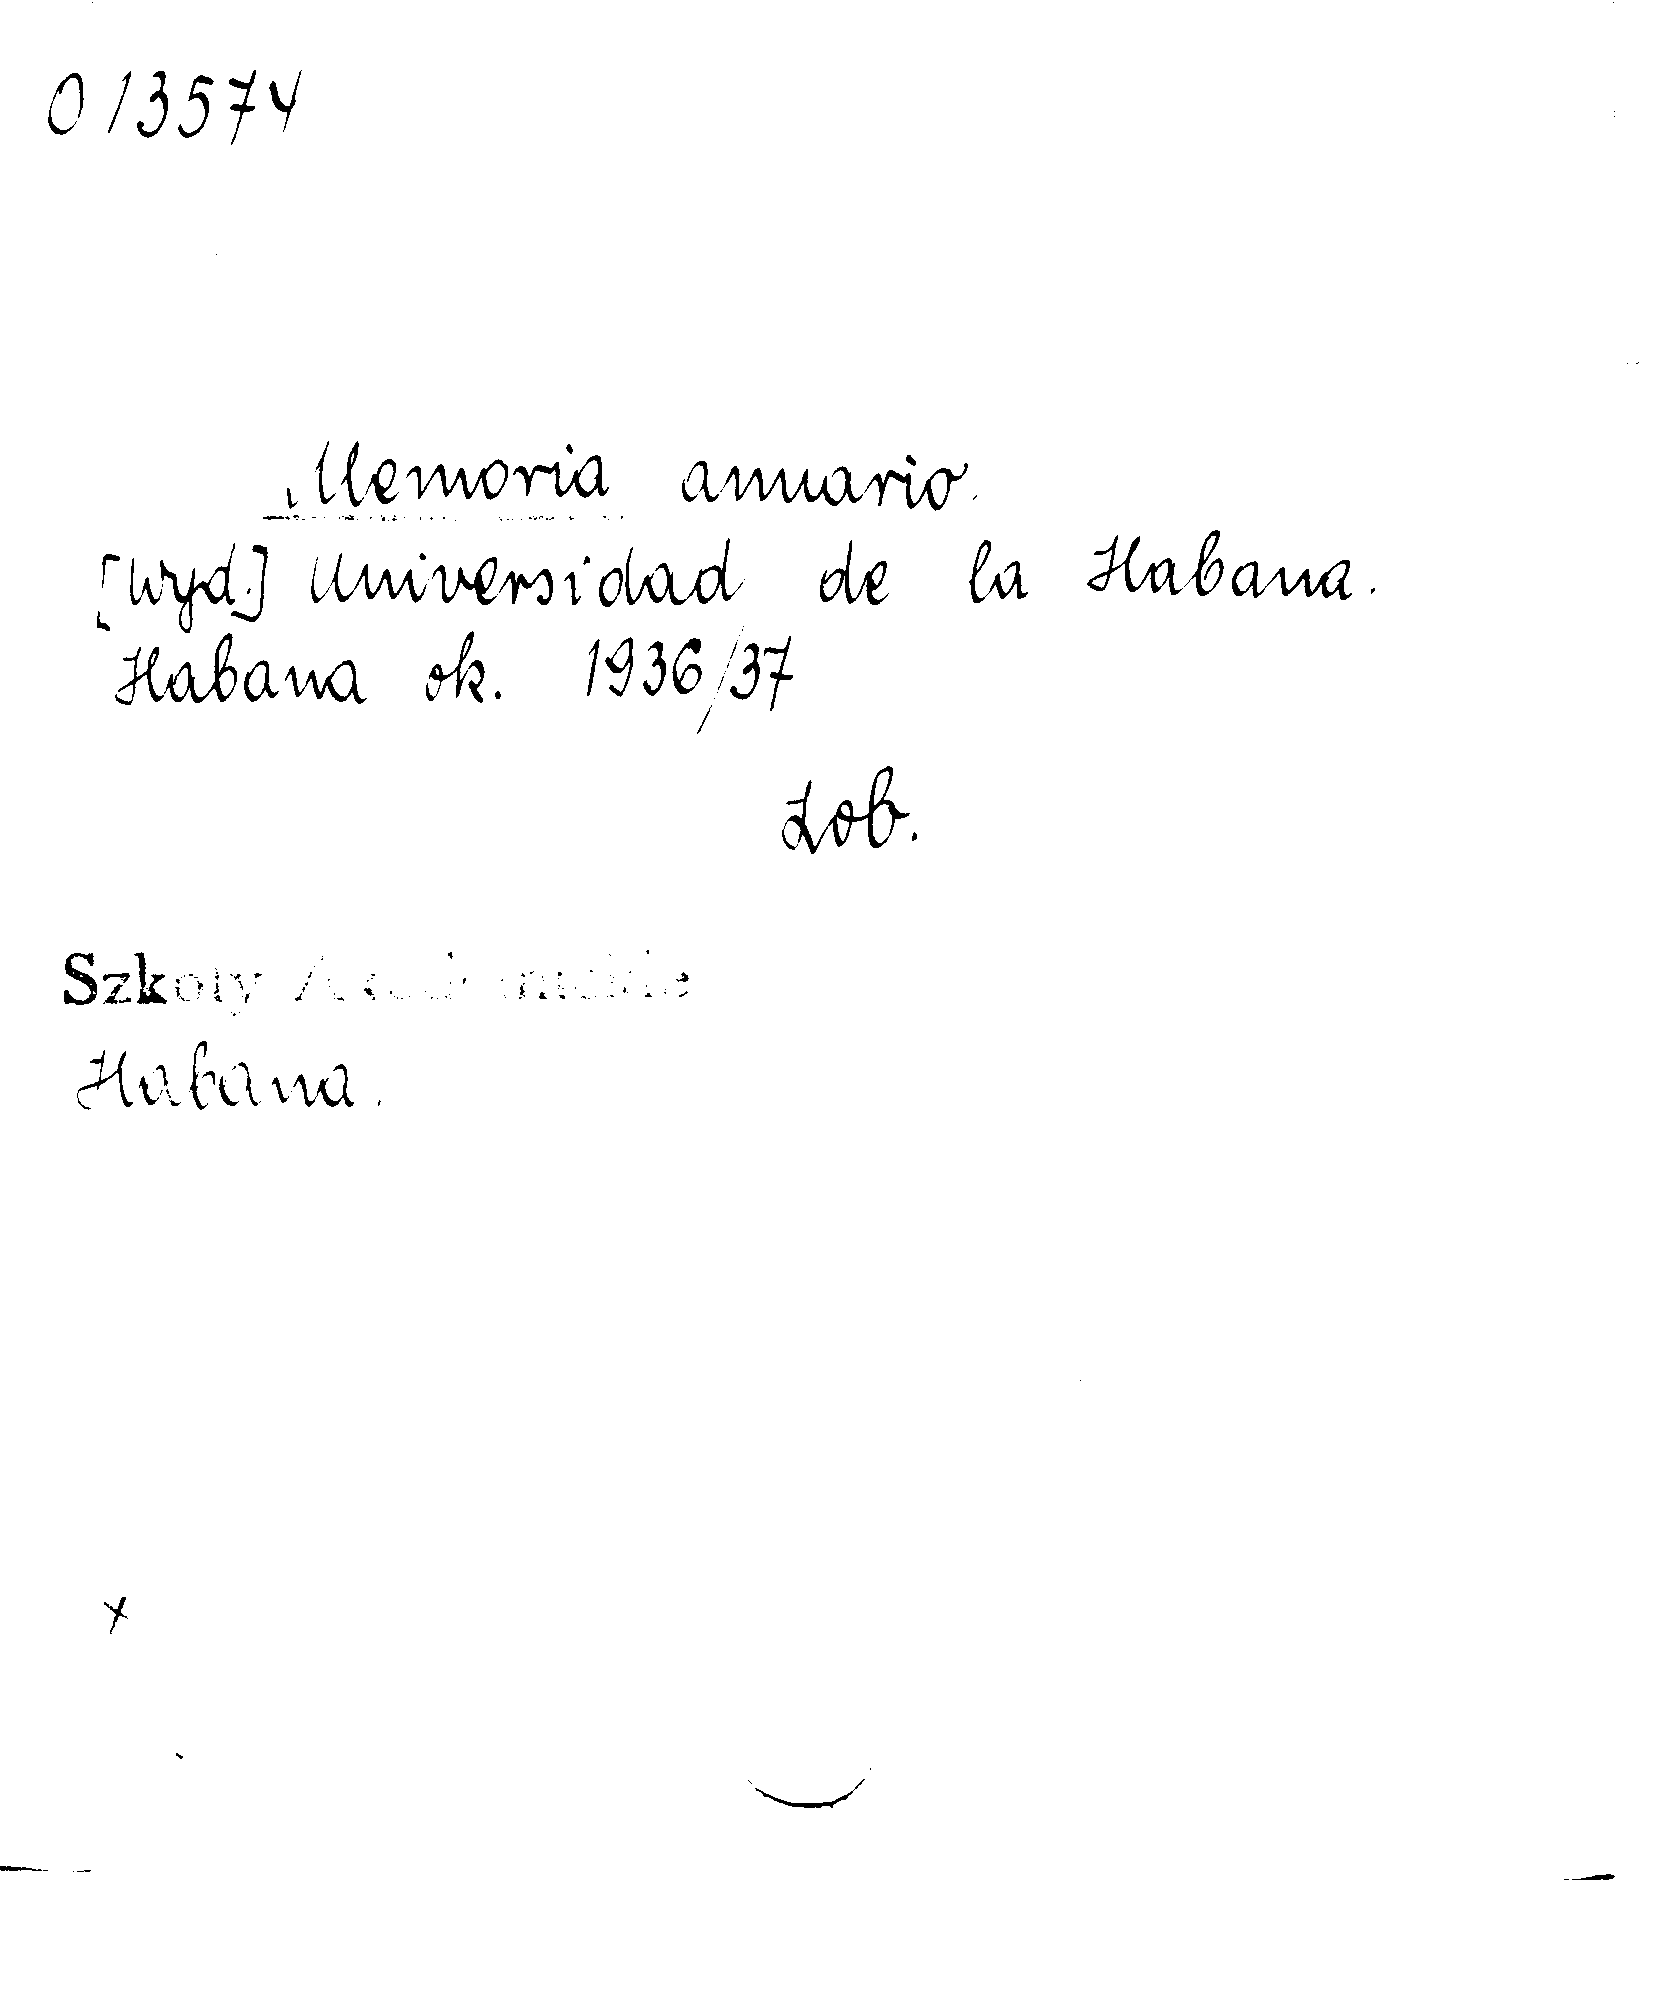 013574
Memoria anuario.
[Wyd.] Universidad de la Habana.
Habana ok. 1936/37
Zob.
Szkoły Akademickie
Habana.
x